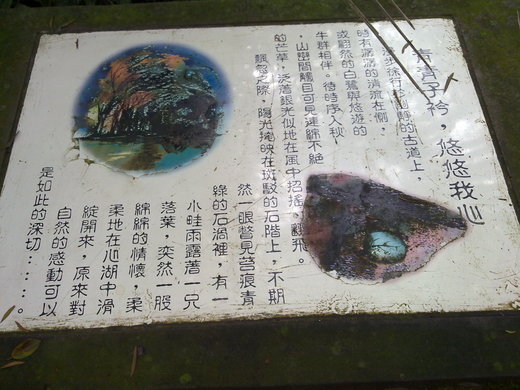 青青子衿，悠悠我心
步徐行綠的古道上，
時有潺潺的清流在側，
或蔚然的白鷺鷥悠遊的
牛群相伴。待時序入秋
，山巒間觸目可見連綿不絕
的芒草，泛著銀光似地在風中招搖、翻飛。
飄忽之際，陽光掩映在斑駁的石階上，不期
然一眼瞥見苔痕青
綠的石渦裡，有一
小畦雨露著一只
落葉，突然一股
綿綿的情懷，柔
柔地在心湖中滑
綻開來，原來對
自然的感動可以
是如此的深切……。